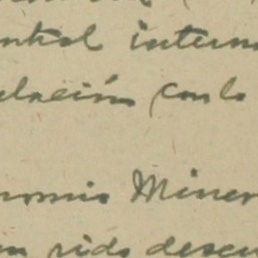 ntrol intern
elación con lo
nomio Miner
an sido descu